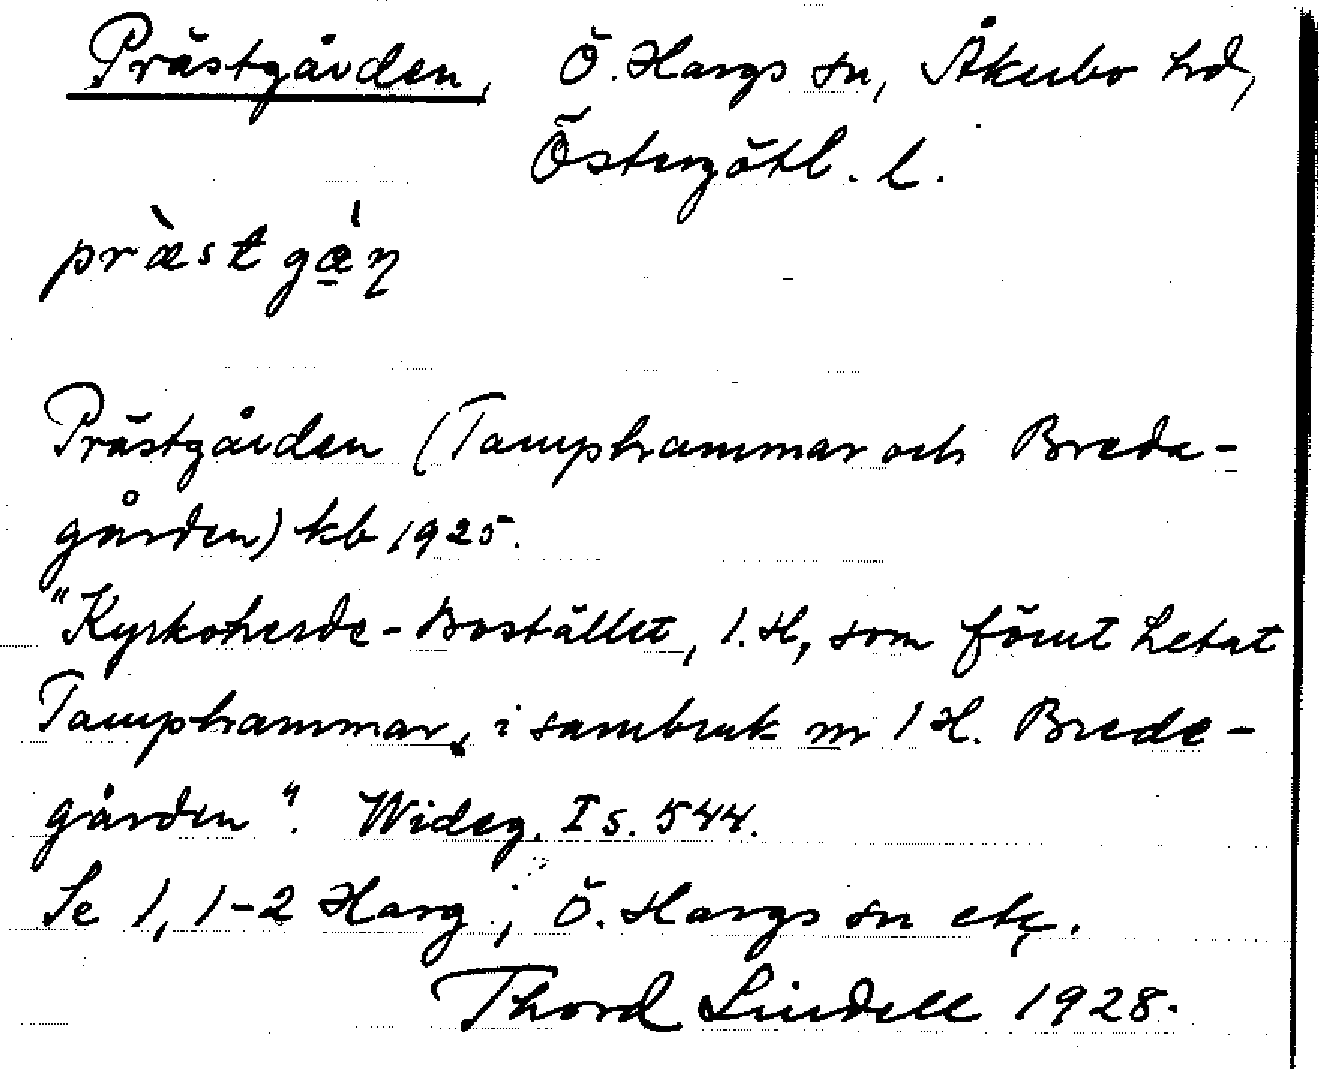 Prästgården, Ö. Hargs sn, Åkerbo hd,
Östergötl. l.
præ̀stgǽ̠ɳ
Prästgården (Tamphammar och Brede-
gården) kb 1925.
"Kyrkoherde-Bostället, 1. H, som förut hetat
Tamphammar, i sambruk m 1 H. Brede-
gården". Wideg. I s. 544.
Se 1, 1-2 Harg, Ö. Hargs sn etc.
Thord Lindell 1928.